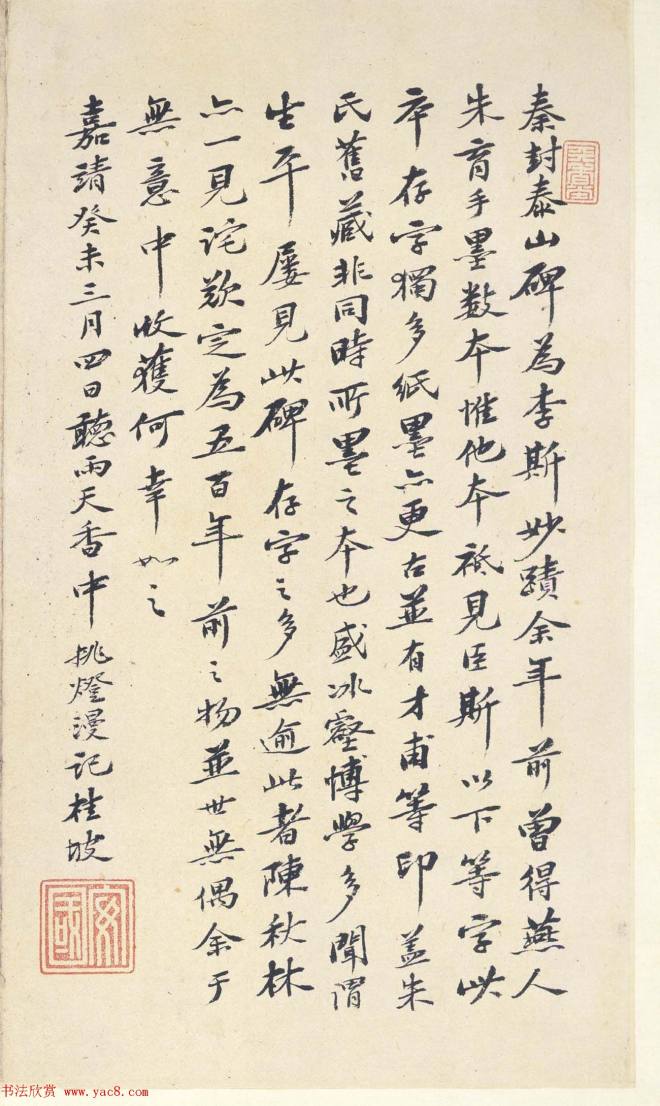 秦封泰山碑為李斯妙蹟余年前曾得燕人
朱育手墨數本惟他本祗見臣斯以下等字此
本存字獨多紙墨亦更古並有才甫等印蓋朱
氏舊藏非同時所墨之本也盛冰壑博學多聞謂
生平屡見此碑存字之多無逾此者陳秋林
亦一見詫歎定為五百年前之物並世無偶余于
無意中收獲何幸如之
嘉靖癸未三月四日聽雨天香中挑燈漫記桂坡
安國
书法欣赏 www.yac8.com